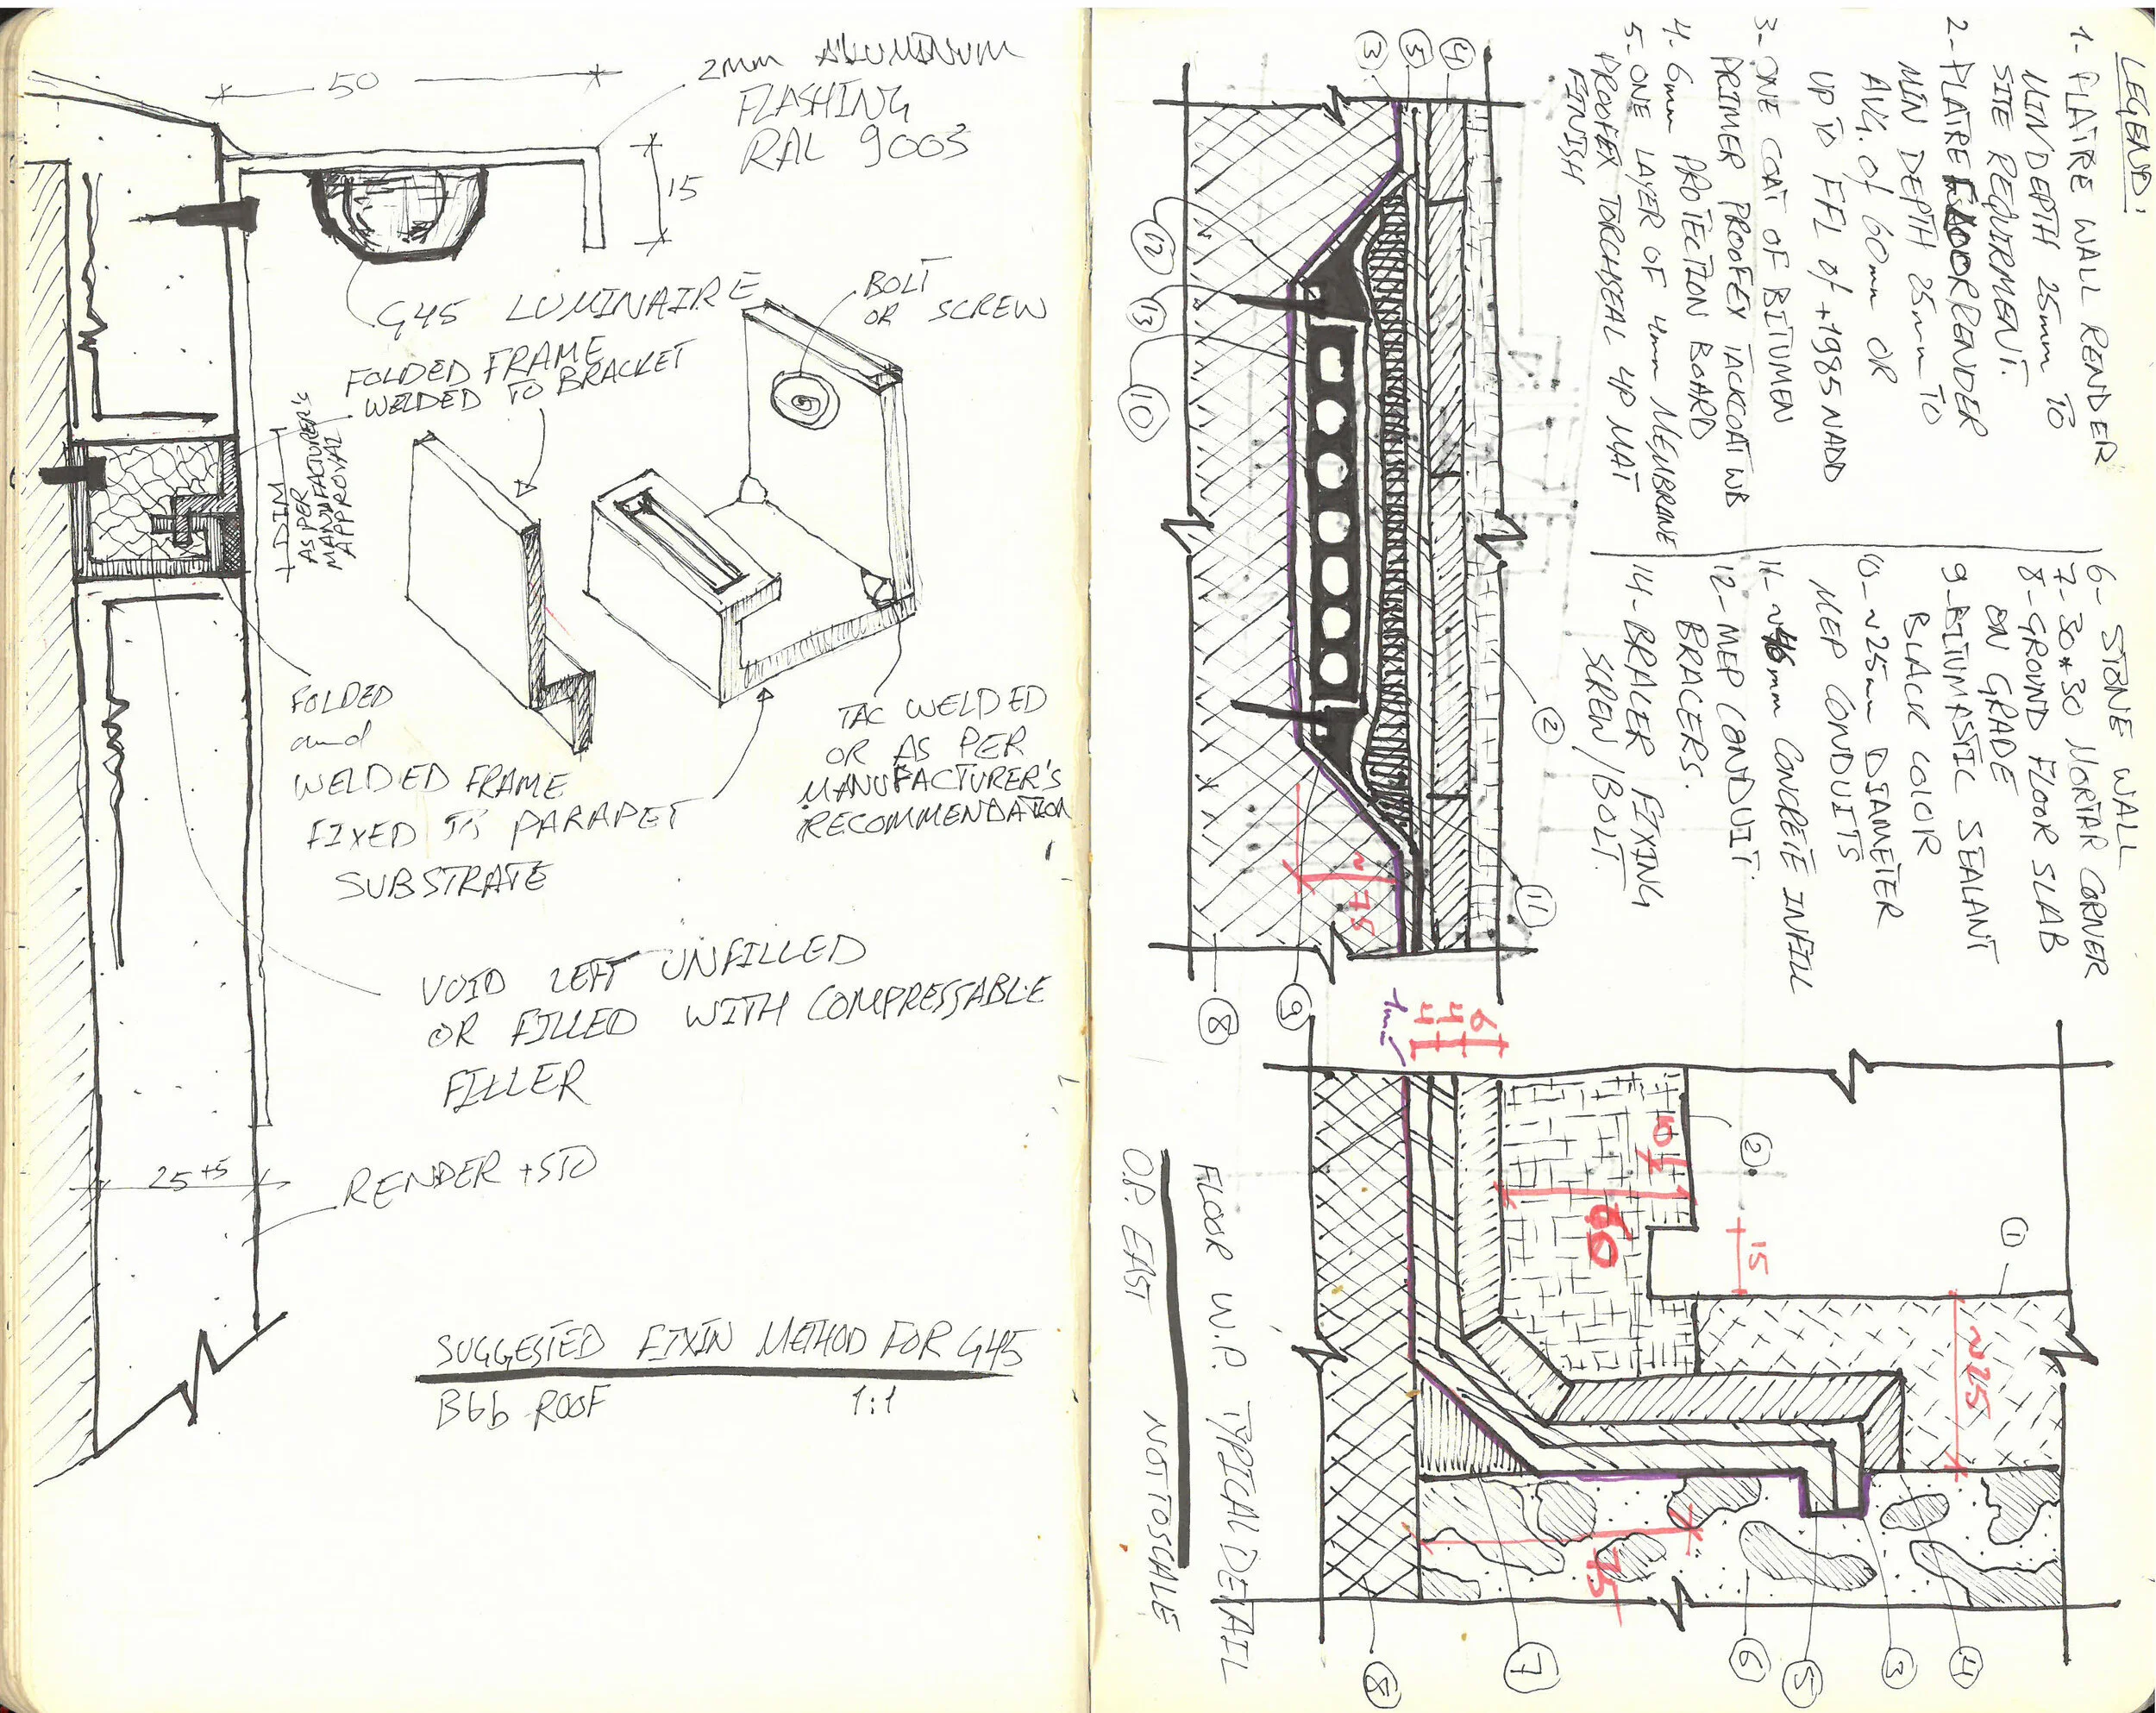 50
2mm ALUMINUM
FLASHING
RAL 9003
15
G45 LUMINAIRE
BOLT
OR SCREW
FOLDED FRAME
WELDED TO BRACKET
DIM
AS PER
MANUFACTURER'S
APPROVAL
FOLDED
and
WELDED FRAME
FIXED TO PARAPET
SUBSTRATE
TAC WELDED
OR AS PER
MANUFACTURER'S
RECOMMENDATION
VOID LEFT UNFILLED
OR FILLED WITH COMPRESSABLE
FILLER
25 +5
RENDER + STO
SUGGESTED FIXIN METHOD FOR G45
B6b ROOF 1:1
LEGEND:
1- PLAIRE WALL RENDER
MIN DEPTH 25mm TO
SITE REQUIRMENT.
2- PLAIRE FLOOR RENDER
MIN DEPTH 25mm TO
AVG. OF 60mm OR
UP TO FFL OF +1985 NADD
3- ONE COAT OF BITUMEN
PRIMER PROOFEX TACKCOAT WB
4- 6mm PROTECTION BOARD
5- ONE LAYER OF 4mm MEMBRANE
PROOFEX TORCHSEAL 4P MAT
FINISH
6- STONE WALL
7- 30*30 MORTAR CORNER
8- GROUND FLOOR SLAB
ON GRADE
9- BITUMASTIC SEALANT
BLACK COLOR
10- ~25mm DIAMETER
MEP CONDUITS
11- ~46mm CONCRETE INFILL
12- MEP CONDUIT
BRACERS.
14- BRACER FIXING
SCREW/BOLT.
3
5
4
12
13
10
2
11
~75
9
8
1mm
4
4
6
2
15
60
15
1
~25
75
8
7
6
5
3
4
FLOOR W.P. TYPICAL DETAIL
O.P. EAST NOT TO SCALE